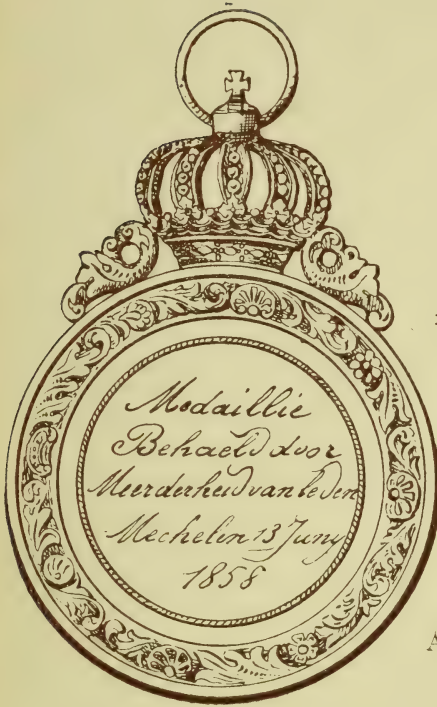 Medaillie
Behaeld door
Meerderheid van leden
Mechelen 13 Juny
1858
A